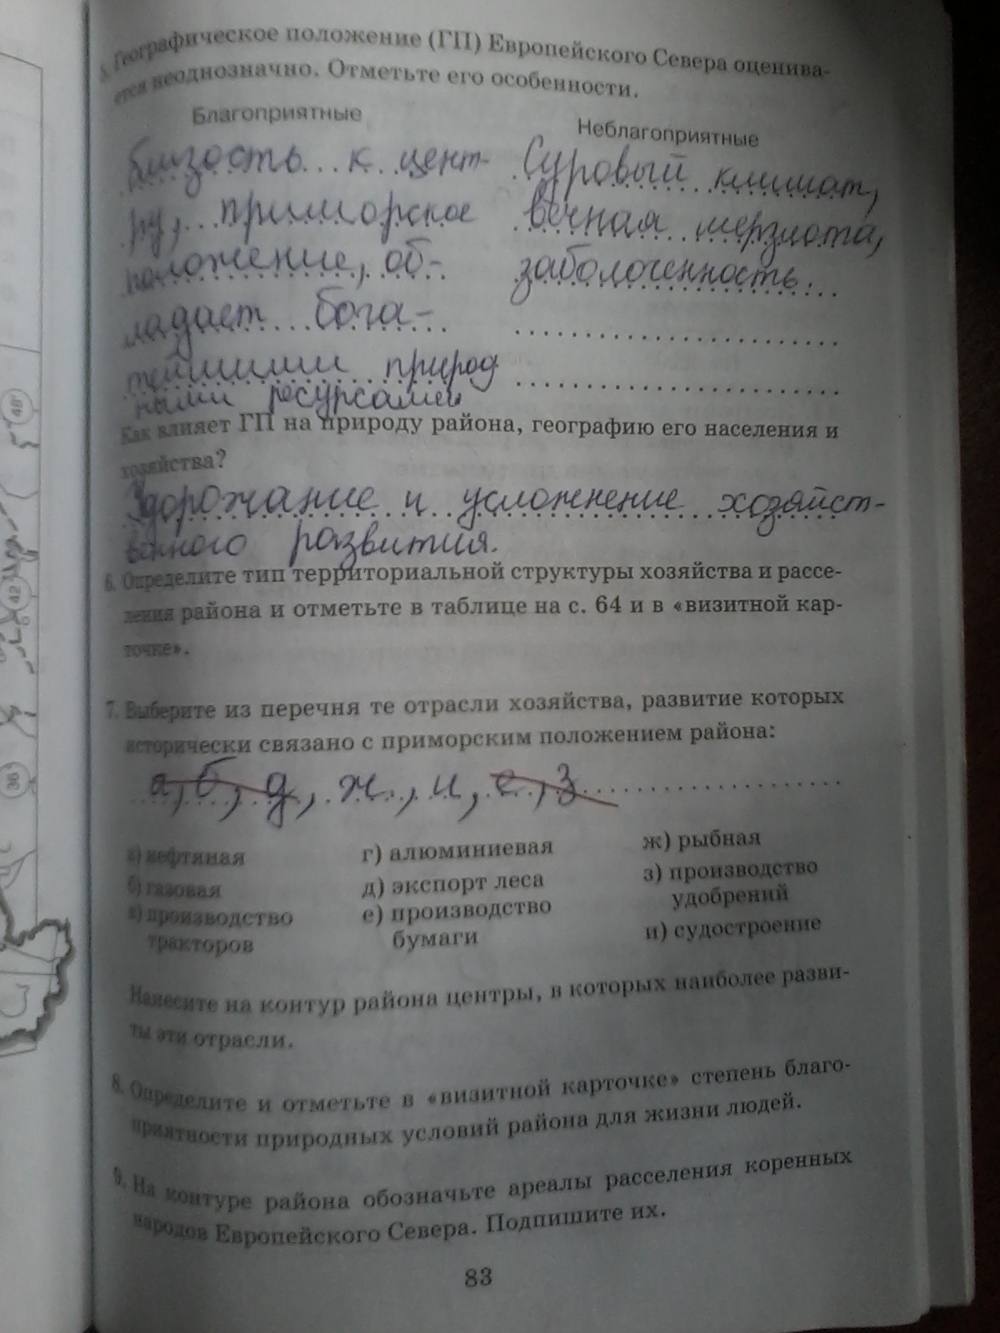 5. Географическое положение (ГП) Европейского Севера оценива-
ется неоднозначно. Отметьте его особенности.
Благоприятные
Неблагоприятные
близость к цент-
ру, приморское
положение, об-
ладает бога-
тейшими природ
ными ресурсами
Суровый климат,
вечная мерзлота,
заболоченность.
Как влияет ГП на природу района, географию его населения и
хозяйства?
Здорожание и усложнение хозяйст-
венного развития.
6. Определите тип территориальной структуры хозяйства и рассе-
ления района и отметьте в таблице на с. 64 и в «визитной кар-
точке».
7. Выберите из перечня те отрасли хозяйства, развитие которых
исторически связано с приморским положением района:
а, б, д, ж, и, е, з
а) нефтяная
б) газовая
в) производство
тракторов
г) алюминиевая
д) экспорт леса
е) производство
бумаги
ж) рыбная
з) производство
удобрений
и) судостроение
Нанесите на контур района центры, в которых наиболее разви-
ты эти отрасли.
8. Определите и отметьте в «визитной карточке» степень благо-
приятности природных условий района для жизни людей.
9. На контуре района обозначьте ареалы расселения коренных
народов Европейского Севера. Подпишите их.
83
48
42
36